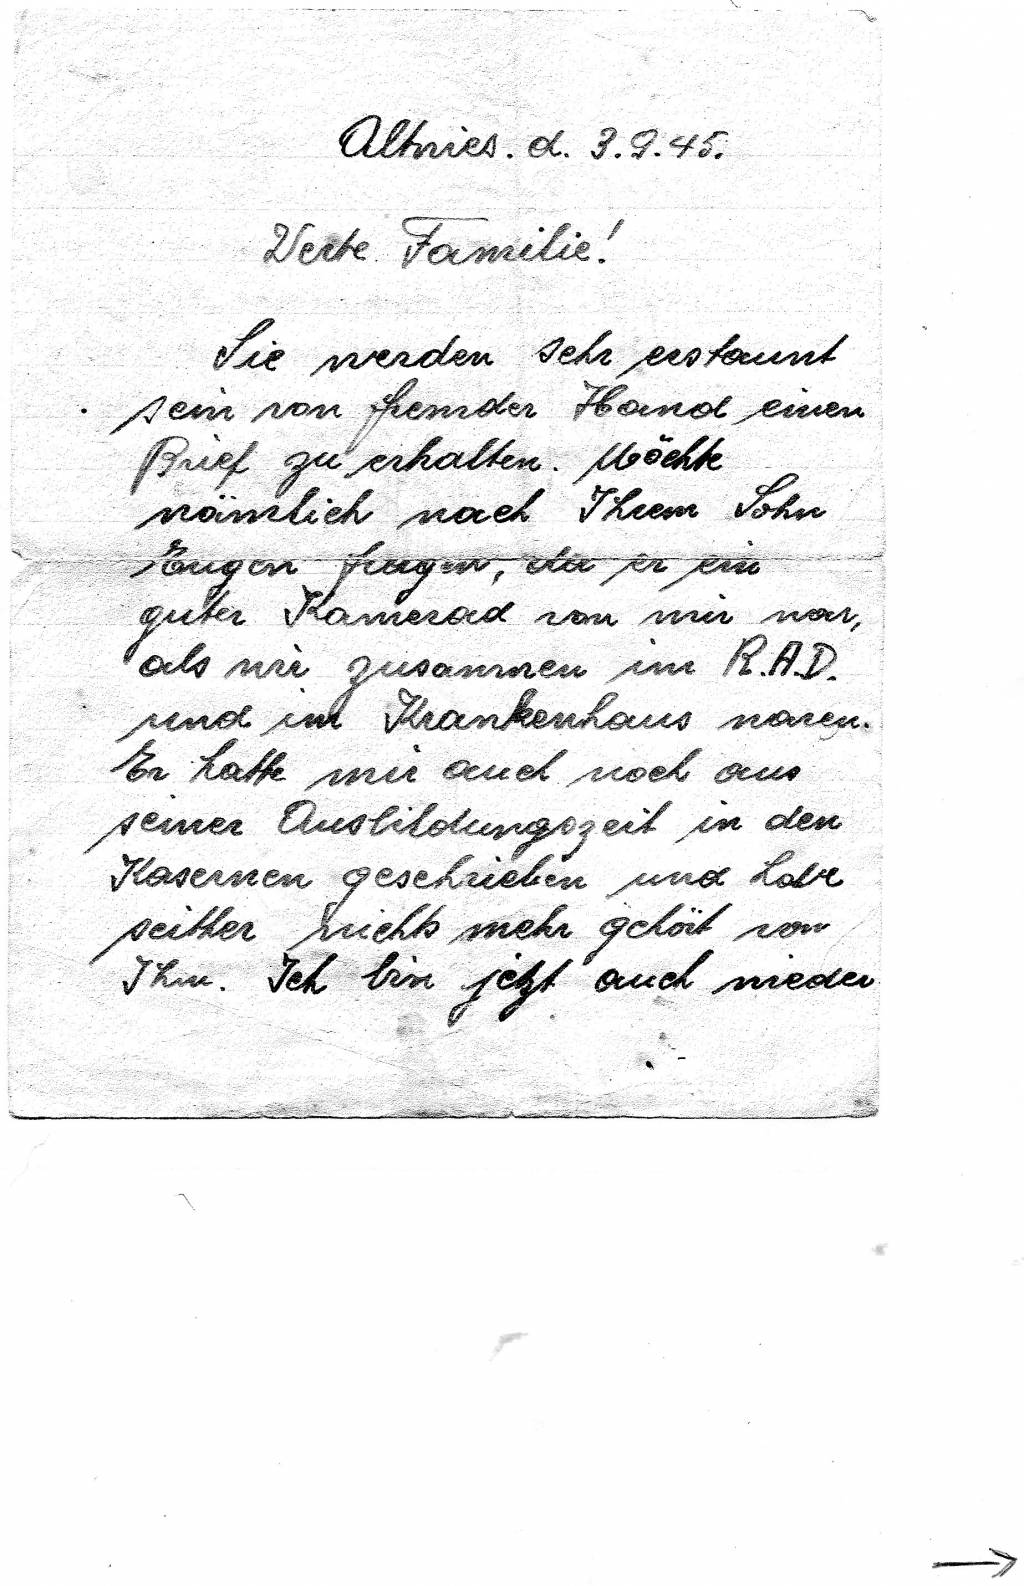 Altnies. d. 3.9.45.
Werte Familie!
Sie werden sehr erstaunt
sein von fremder Hand einen
Brief zu erhalten. Möchte
nämlich nach Ihrem Sohn
Eugen fragen, da er ein
guter Kamerad von mir war,
als wir zusammen im R.A.D.
und im Krankenhaus waren.
Er hatte mir auch noch aus
seiner Ausbildungszeit in den
Kasernen geschrieben und habe
seither nichts mehr gehört von
Ihm. Ich bin jetzt auch wieder